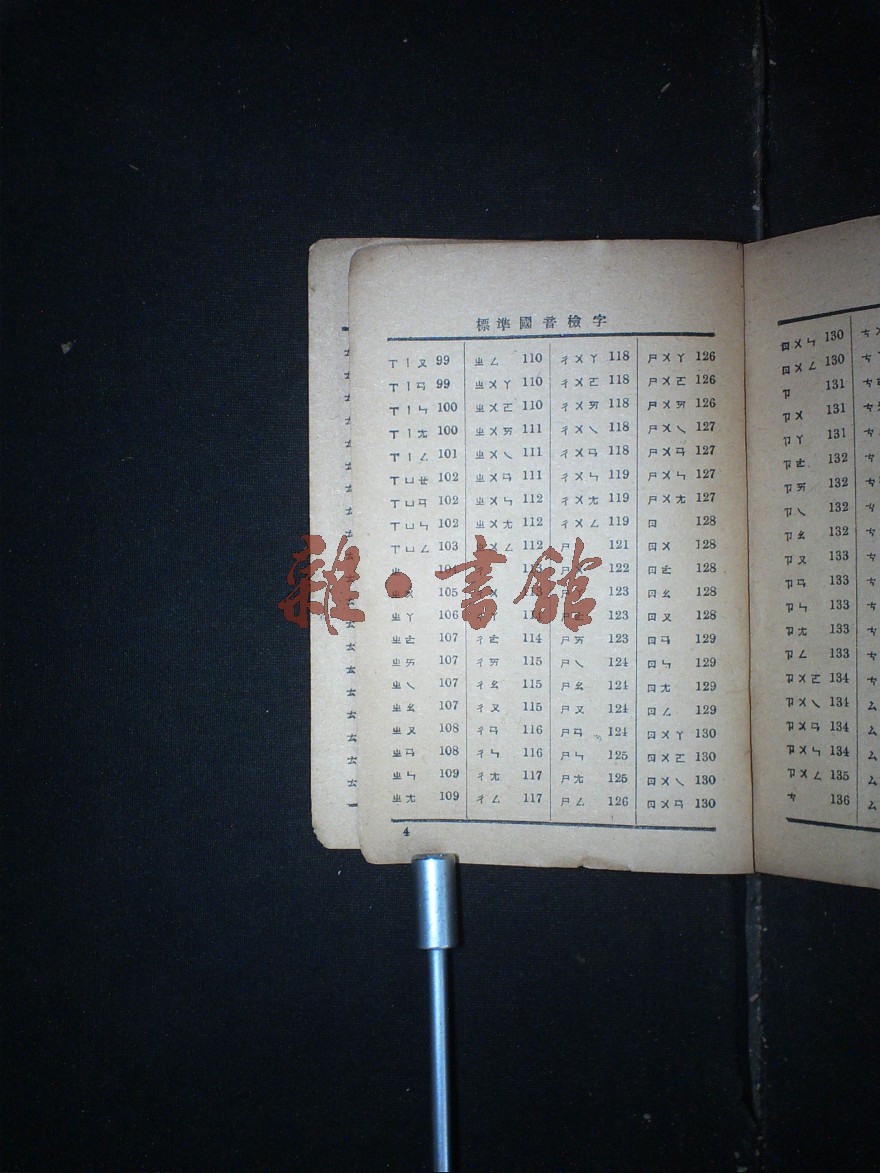 標準國音檢字
ㄒㄧㄡ 99
ㄒㄧㄢ 99
ㄒㄧㄣ 100
ㄒㄧㄤ 100
ㄒㄧㄥ 101
ㄒㄩㄝ 102
ㄒㄩㄢ 102
ㄒㄩㄣ 102
ㄒㄩㄥ 103
ㄓ 104
ㄓㄨ 105
ㄓㄚ 106
ㄓㄜ 107
ㄓㄞ 107
ㄓㄟ 107
ㄓㄠ 107
ㄓㄡ 108
ㄓㄢ 108
ㄓㄣ 109
ㄓㄤ 109
ㄓㄥ 110
ㄓㄨㄚ 110
ㄓㄨㄛ 110
ㄓㄨㄞ 111
ㄓㄨㄟ 111
ㄓㄨㄢ 111
ㄓㄨㄣ 112
ㄓㄨㄤ 112
ㄓㄨㄥ 112
ㄔ 113
ㄔㄨ 113
ㄔㄚ 114
ㄔㄜ 114
ㄔㄞ 115
ㄔㄠ 115
ㄔㄡ 115
ㄔㄢ 116
ㄔㄣ 116
ㄔㄤ 117
ㄔㄥ 117
ㄔㄨㄚ 118
ㄔㄨㄛ 118
ㄔㄨㄞ 118
ㄔㄨㄟ 118
ㄔㄨㄢ 118
ㄔㄨㄣ 119
ㄔㄨㄤ 119
ㄔㄨㄥ 119
ㄕ 121
ㄕㄨ 122
ㄕㄚ 123
ㄕㄜ 123
ㄕㄞ 123
ㄕㄟ 124
ㄕㄠ 124
ㄕㄡ 124
ㄕㄢ 124
ㄕㄣ 125
ㄕㄤ 125
ㄕㄥ 126
ㄕㄨㄚ 126
ㄕㄨㄛ 126
ㄕㄨㄞ 126
ㄕㄨㄟ 127
ㄕㄨㄢ 127
ㄕㄨㄣ 127
ㄕㄨㄤ 127
ㄖ 128
ㄖㄨ 128
ㄖㄜ 128
ㄖㄠ 128
ㄖㄡ 128
ㄖㄢ 129
ㄖㄣ 129
ㄖㄤ 129
ㄖㄥ 129
ㄖㄨㄚ 130
ㄖㄨㄛ 130
ㄖㄨㄟ 130
ㄖㄨㄢ 130
4
ㄖㄨㄣ 130
ㄖㄨㄥ 130
ㄗ 131
ㄗㄨ 131
ㄗㄚ 131
ㄗㄜ 132
ㄗㄞ 132
ㄗㄟ 132
ㄗㄠ 132
ㄗㄡ 133
ㄗㄢ 133
ㄗㄣ 133
ㄗㄤ 133
ㄗㄥ 133
ㄗㄨㄛ 134
ㄗㄨㄟ 134
ㄗㄨㄢ 134
ㄗㄨㄣ 134
ㄗㄨㄥ 135
ㄘ 136
雜·書館